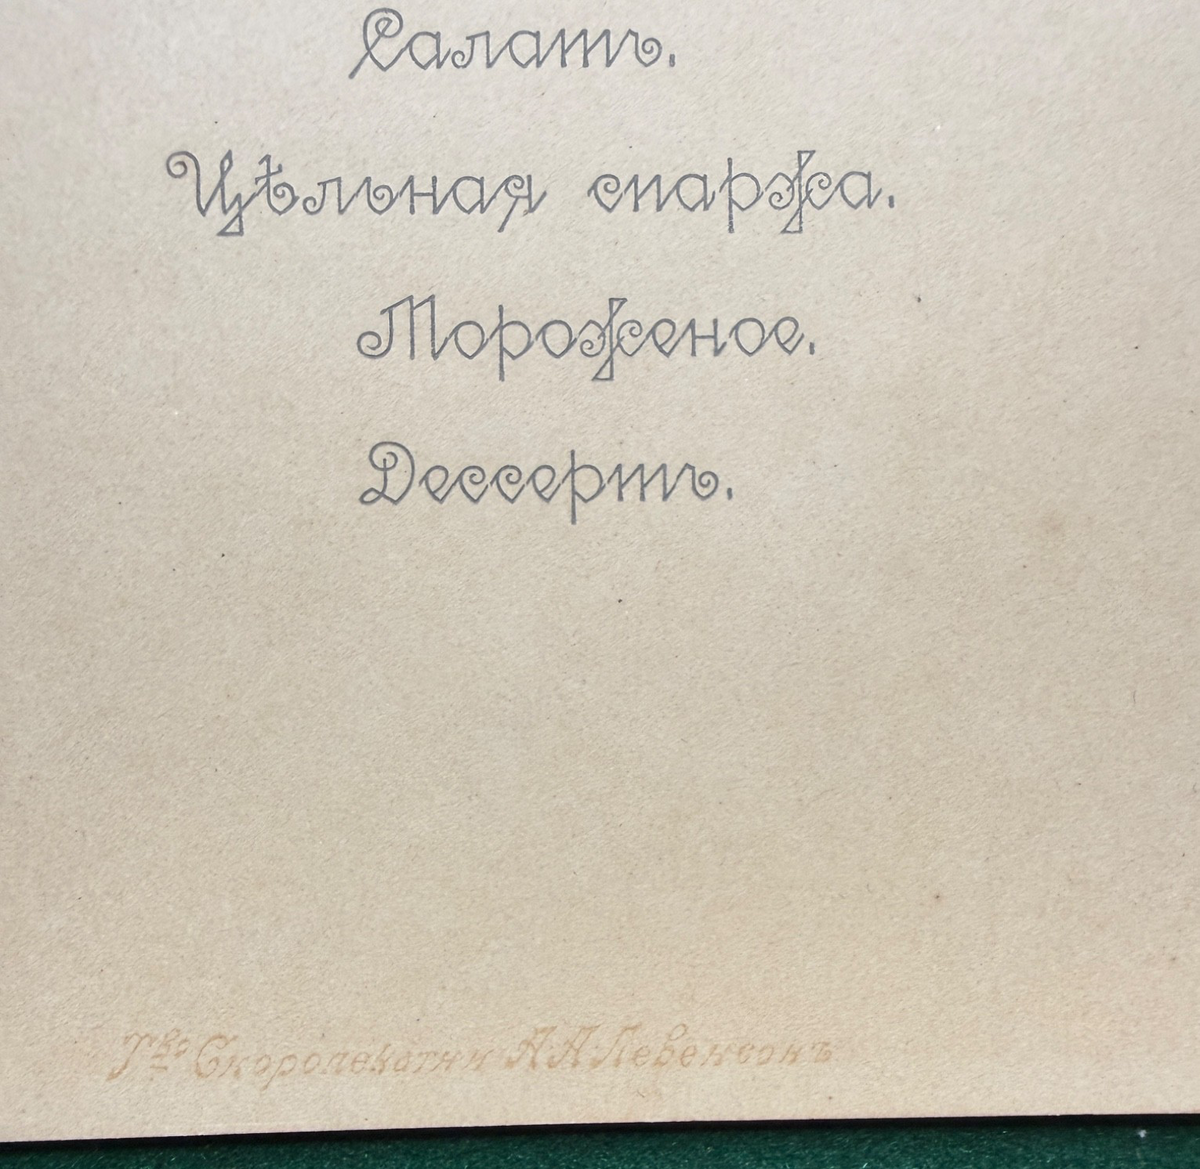 Салатъ.
Цѣльная спаржа.
Мороженое.
Дессертъ.
Т-во Скоропечатни А.А.Левенсонъ